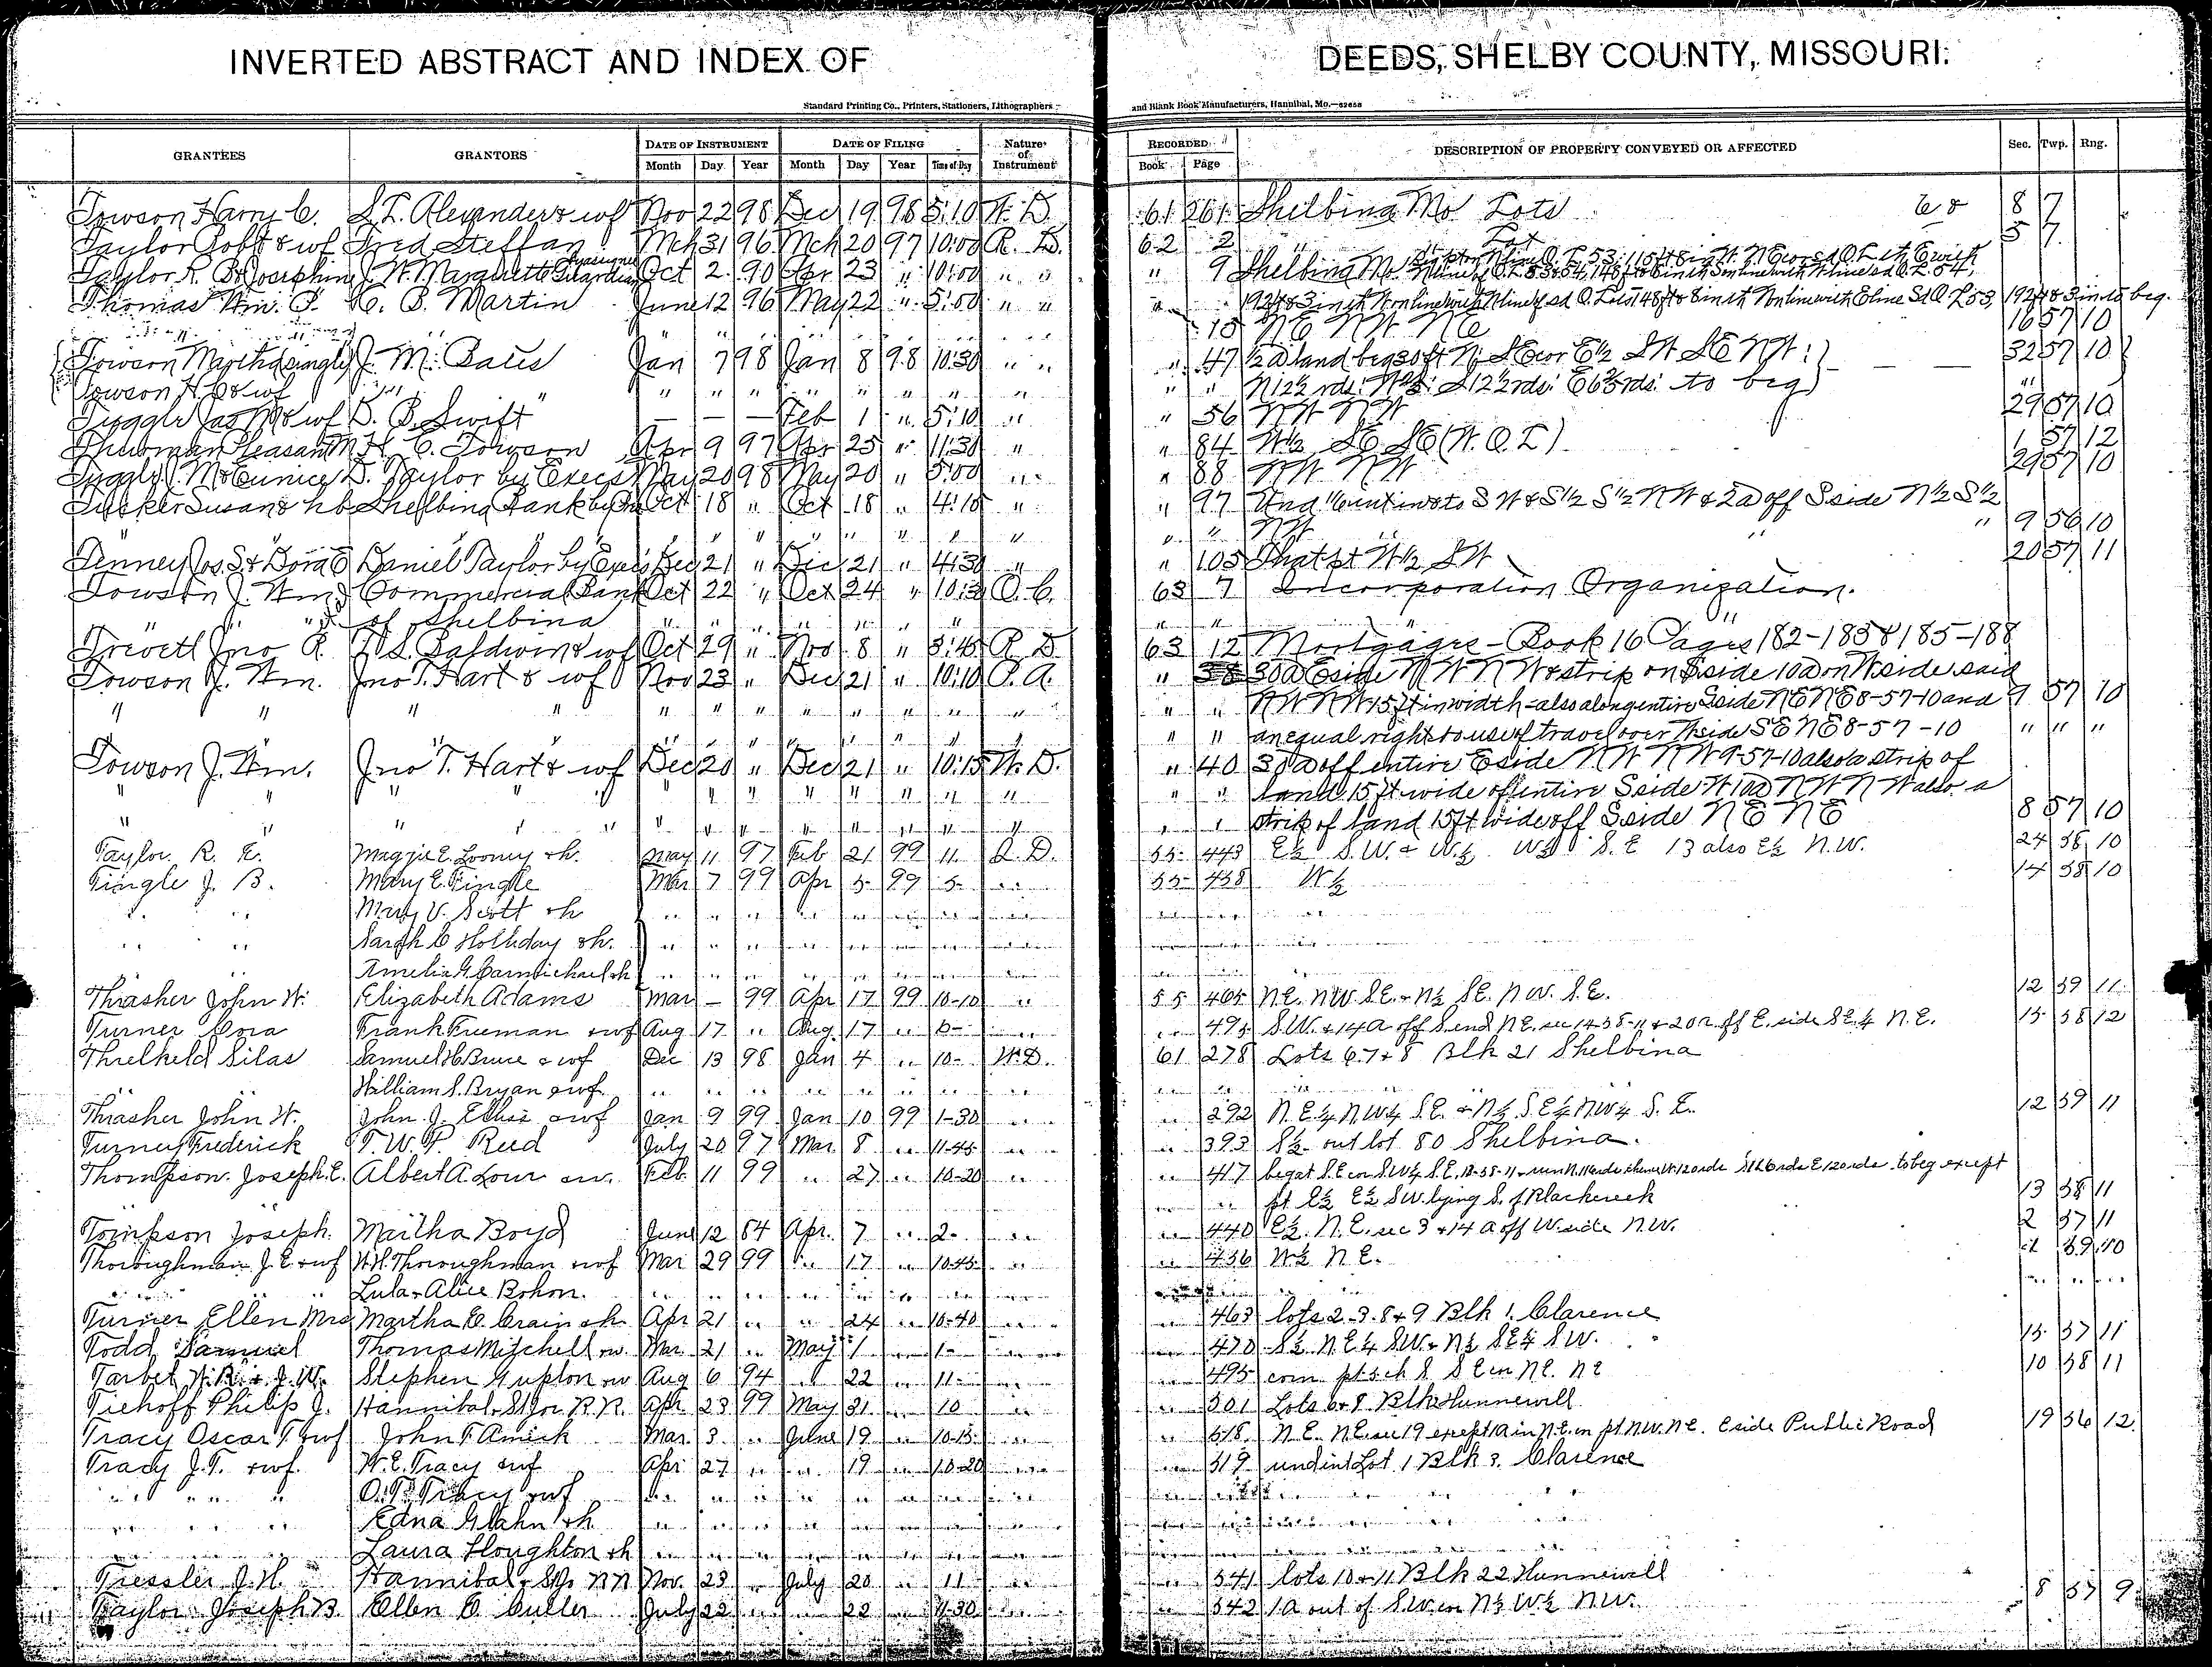 INVERTED ABSTRACT AND INDEX OF DEEDS, SHELBY COUNTY, MISSOURI.
Standard Printing Co., Printers, Stationers, Lithographers and Blank Book Manufacturers, Hannibal, Mo.
GRANTEES GRANTORS DATE OF INSTRUMENT DATE OF FILING Nature of Instrument RECORDED DESCRIPTION OF PROPERTY CONVEYED OR AFFECTED Sec. Twp. Rng.
Month Day Year Month Day Year Time of Day Book Page
Towson Harry C. S. T. Alexander & wf Nov 22 98 Dec 19 98 5:10 W. D. 61 261 Shelbina Mo Lots 6 & 8 7
Taylor Robt & wf Fred Steffan Mch 31 96 Mch 20 97 10:00 R. D. 62 2 " " Lot 5 7
Taylor R. B & Josephine J. W. Marquette Oct 2 90 Apr 23 " 10:00 " " " 9 Shelbina Mo
Thomas Wm. T. C. B. Martin June 12 96 May 22 " 5:00 " "
" " 15 NE NW NE 16 57 10
Towson Martha (single) J. M. Bates Jan 7 98 Jan 8 98 10:30 " " " 47 ½ a land beg 30 ft N. SE cor E½ SW SE NW: 32 57 10
Towson H. C. & wf " " " " " " " " " " N 12½ rds: to beg
Tuggle Jas M & wf D. B. Swift — — — Feb 1 " 5:10 " " 56 NW NW 29 57 10
Thurman Pleasant M H. C. Towson Apr 9 97 Apr 25 " 11:30 " " 84 W½ SE SE (W. O. L) 1 57 12
Tuggle J. M & Eunice D. Taylor by Execs May 20 98 May 20 " 5:00 " " 88 NW NW 29 57 10
Tucker Susan & hb Shelbina Bank by Oct 18 " Oct 18 " 4:15 " " 97 Und 1/6 int in & to SW & S½ S½ NW & 2a off S side N½ S½
" " " " " " " " " " NW " 9 56 10
Tenney Jos. S. & Dora E Daniel Taylor by Execs Dec 21 " Dec 21 " 4:30 " " 105 That pt W½ SW 20 57 11
Towson J. Wm Commercial Bank Oct 22 " Oct 24 " 10:30 O. C. 63 7 Incorporation Organization.
" " of Shelbina " " " " " " " " " "
Trevett Jno R. W. S. Baldwin & wf Oct 29 " Nov 8 " 3:45 R. D. 63 12 Mortgages - Book 16 Pages 182-183 & 185-188
Towson J. Wm. Jno T. Hart & wf Nov 23 " Dec 21 " 10:10 P. A. " 38 30a E side NW NW & strip on S side 10a on W side said
" " " " " " " " " " " " " " NW NW 15 ft in width - also along entire S side NE NE 8-57-10 and 9 57 10
" " " " " " " " " an equal right to use of travel over N side SE NE 8-57-10 " " "
Towson J. Wm. Jno T. Hart & wf Dec 20 " Dec 21 " 10:15 W. D. " 40 30a off entire E side NW NW 9-57-10 also a strip of
" " " " " " " " " " " " " land 15 ft wide off entire S side W 10a NW NW also a
" " " " " " " " " " " " " strip of land 15 ft wide off S side NE NE 8 57 10
Taylor R. E. Maggie E. Looney & h. May 11 97 Feb 21 99 11. Q. D. 55 443 E½ S.W. & W½ W½ S.E 13 also E½ N.W. 24 58 10
Tingle J. B. Mary E. Tingle Mar 7 99 Apr 5 99 5- " 55 458 W½ 14 58 10
" " Mary V. Scott & h " " " " " "
" " Sarah C Holliday & h. " " " " " "
Amelia G. Carmichael & h " " " " " "
Thrasher John W. Elizabeth Adams Mar — 99 Apr 17 99 10-10 " 55 465 N.E. NW SE. & N½ SE. NW. S.E. 12 59 11
Turner Cora Frank Freeman & wf Aug 17 " Aug. 17 " 6- " " 495 S.W. & 14a off S. end N.E. sec 14-58-11 & 20a off E. side SE¼ N.E. 15 58 12
Threlkeld Silas Samuel C Bruce & wf Dec 13 98 Jan 4 " 10- W.D. 61 278 Lots 6.7 & 8 Blk 21 Shelbina
William S. Bryan & wf " " " " " " " " "
Thrasher John W. John J. Ellis & wf Jan 9 99 Jan 10 99 1-30 " " 292 N.E¼ NW¼ S.E. & N½ S.E¼ NW¼ S.E. 12 59 11
Turner Frederick T. W. P. Reed July 20 97 Mar 8 " 11-45 " " 393 S½ out lot 80 Shelbina.
Thompson Joseph E. Albert A. Lowr & w. Feb. 11 99 " 27 " 10-20 " " 417 beg at S.E cor S.W¼ S.E. 13-58-11 to beg except
" " pt E½ E½ S.W. lying S. of Black creek 13 58 11
Tompson Joseph. Martha Boyd June 12 64 Apr. 7 " 2- " " 440 E½ N.E. sec 3 & 14 a off W. side N.W. 2 57 11
Thoroughman J. E & wf W. H. Thoroughman & wf Mar 29 99 " 17 " 10-45 " " 456 W½ N.E. 59 10
" " Lula & Alice Bohon. " " " " " " "
Turner Ellen Mrs Martha E. Crain & h Apr 21 " " 24 " 10-40 " " 463 lots 2-3.8 & 9 Blk 1. Clarence
Todd, Samuel Thomas Mitchell & w. Mar. 21 " May 1 " 1- " " 470 S½ N.E¼ S.W. & N½ SE¼ S.W. 15 57 11
Tarbet W. R. & J. W. Stephen Gupton & w Aug 6 94 " 22 " 11- " " 495 com. N.E. NE 10 58 11
Tiehoff Philip J. Hannibal & St Jo. R.R. Apr. 23 99 May 31 " 10 " " 501 Lots Blk Hunnewell
Tracy Oscar T. & wf John T. Amick Mar. 3 " June 19 " 10-15 " " 518 N.E. N.E. sec 19 except 1a in N.E. cor pt NW. N.E. E side Public Road 19 56 12
Tracy J. T. & wf. W. E. Tracy & wf Apr 27 " " 19 " 10-20 " " 519 und int Lot 1 Blk 3. Clarence
" " " O. T. Tracy & wf " " " " " "
" " " Edna Glahn & h " " " " " "
Laura Houghton & h " " " " " "
Tressler J. H. Hannibal & St Jo RR Nov. 23 " July 20 " 11 " " 541 lots 10 & 11 Blk 22 Hunnewell
Taylor Joseph B. Ellen E. Culler July 22 " " 22 " 4-30 " " 542 1a out of S.W. cor N½ W½ N.W. 8 57 9